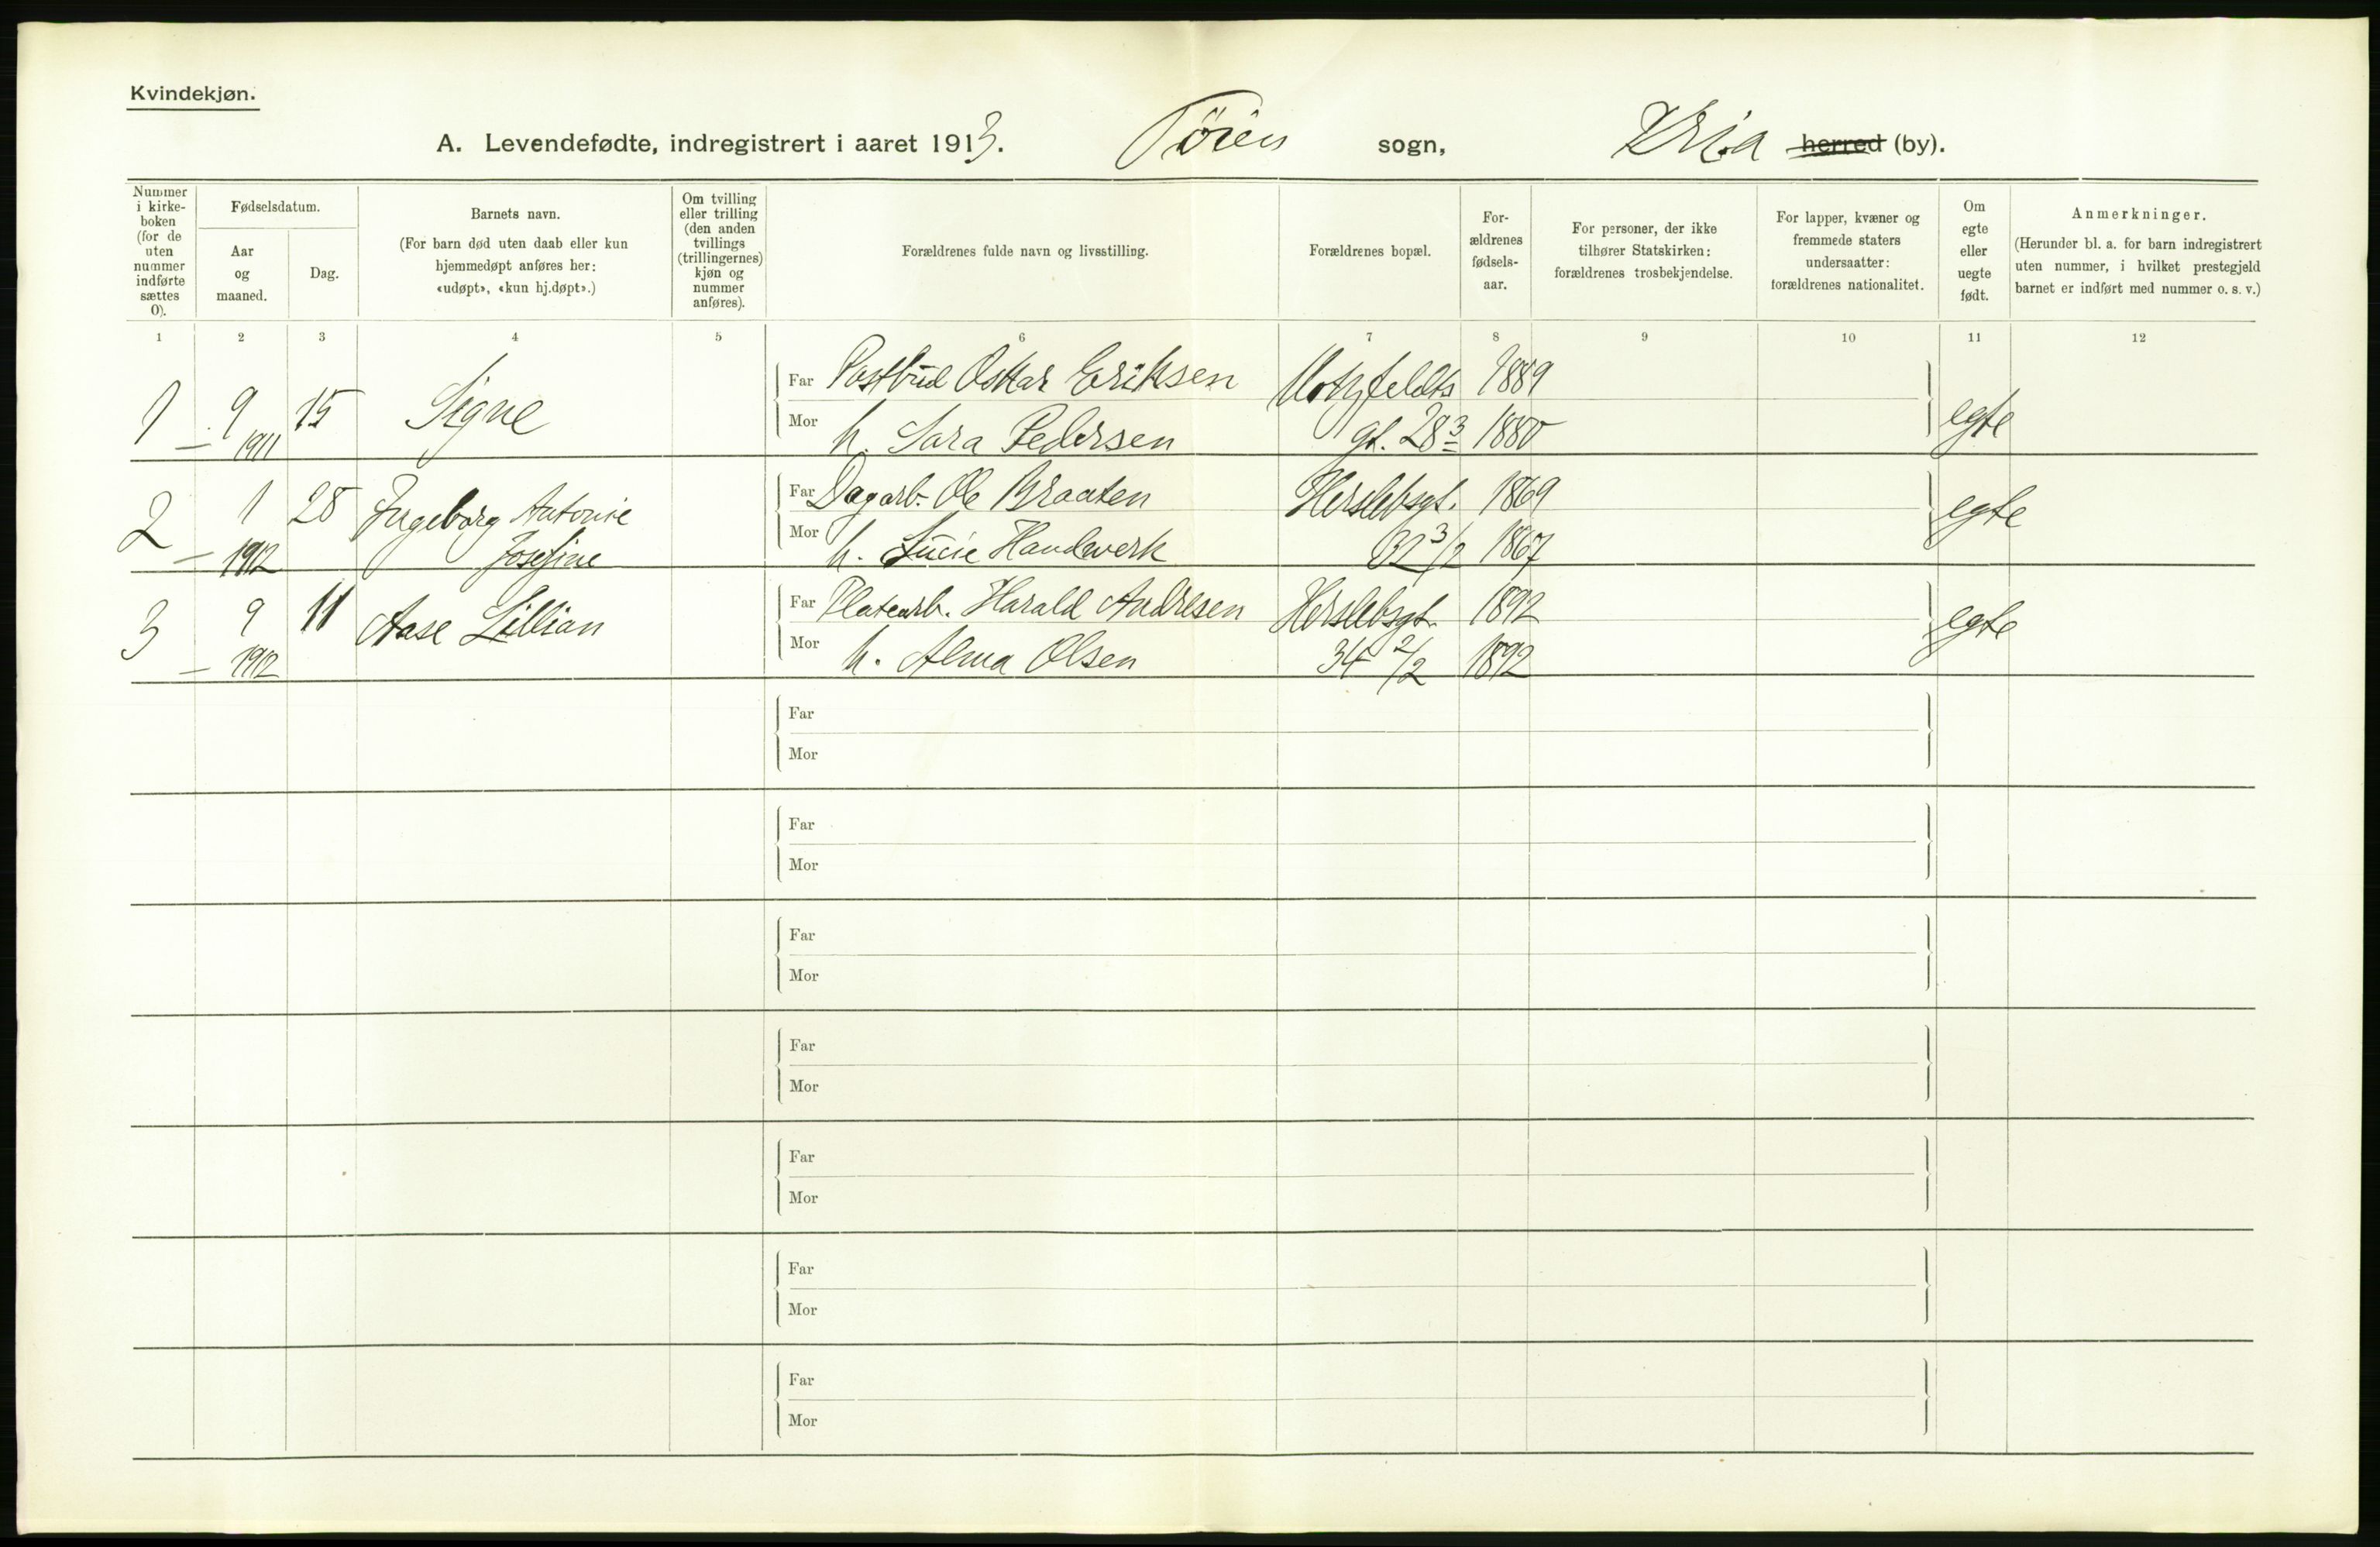 Kvindekjøn.
A. Levendefødte, indregistrert i aaret 1913. Tøien sogn, Kria herred (by).
Nummer i kirke-boken (for de uten nummer indførte sættes 0).
Fødselsdatum.
Aar og maaned.
Dag.
Barnets navn.
(For barn død uten daab eller kun
hjemmedøpt anføres her:
«udøpt», «kun hj.døpt».)
Om tvilling
eller trilling
(den anden
tvillings
(trillingernes)
kjøn og
nummer
anføres).
Forældrenes fulde navn og livsstilling.
Forældrenes bopæl.
For-
ældrenes
fødsels-
aar.
For personer, der ikke
tilhører Statskirken:
forældrenes trosbekjendelse.
For lapper, kvæner og
fremmede staters
undersaatter:
forældrenes nationalitet.
Om
egte
eller
uegte
født.
Anmerkninger.
(Herunder bl. a. for barn indregistrert
uten nummer, i hvilket prestegjeld
barnet er indført med nummer o. s. v.)
1 2 3 4 5 6 7 8 9 10 11 12
1 9 15 Signe Far Postbud Oskar Eriksen Motzfeldts 1889 egte
1911 Mor h. Sara Pedersen gt. 28 3 1880
2 1 28 Ingeborg Antonie Far Dagarb. Ole Braaten Herslebsgt. 1869 egte
1912 Josefine Mor h. Lucie Handwerk 32 3/2 1867
3 9 11 Aase Lillian Far Platearb. Harald Andresen Herslebsgt. 1892 egte
1912 Mor h. Alma Olsen 34 2/2 1892
Far
Mor
Far
Mor
Far
Mor
Far
Mor
Far
Mor
Far
Mor
Far
Mor